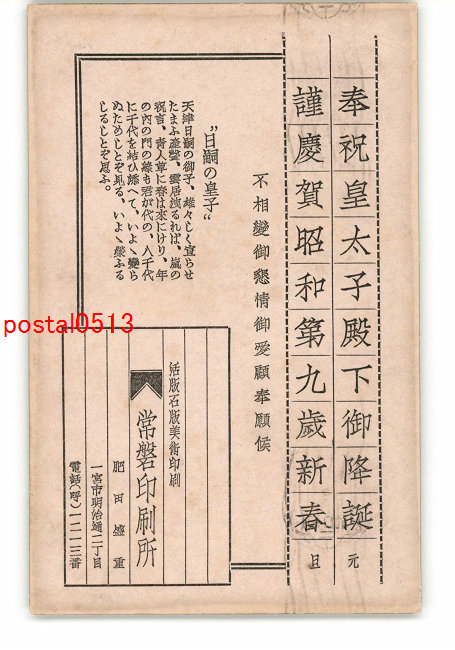 奉祝皇太子殿下御降誕
謹慶賀昭和第九歳新春
元旦
不相變御懇情御愛顧奉願候
"日嗣の皇子"
天津日嗣の御子、雄々しく宣らせ
たまふ産聲、雲居洩るれば、嵐の
祝言、青人草に春は來にけり、年
の內の門の綠も君が代の、八千代
に千代を結び添へて、いよゝ變ら
ぬためしとぞ見る、いよゝ榮ふる
しるしとぞ思ふ。
活版石版美術印刷
常磐印刷所
肥田盛重
一宮市明治通二丁目
電話(呼)一二一三番
postal0513